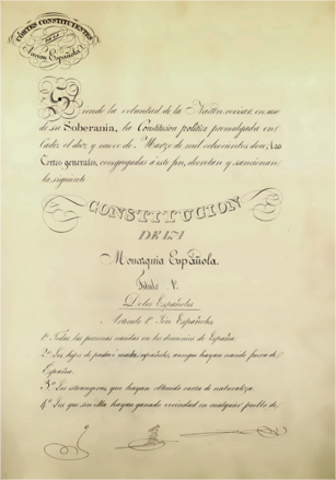 CÓRTES CONSTITUYENTES
DE LA
Nacion Española
Siendo la voluntad de la Nacion revisar, en uso
de su Soberanía, la Constitucion política promulgada en
Cádiz el diez y nueve de Marzo de mil ochocientos doce, las
Córtes generales, congregadas á este fin, decretan y sancionan
la siguiente
CONSTITUCION
DE LA
Monarquia Española.
Título 1º
De los Españoles
Artículo 1º Son Españoles
1º Todas las personas nacidas en los dominios de España.
2º Los hijos de padre ó madre españoles, aunque hayan nacido fuera de
España.
3º Los estrangeros que hayan obtenido carta de naturaleza.
4º Los que sin ella hayan ganado vecindad en cualquier pueblo de